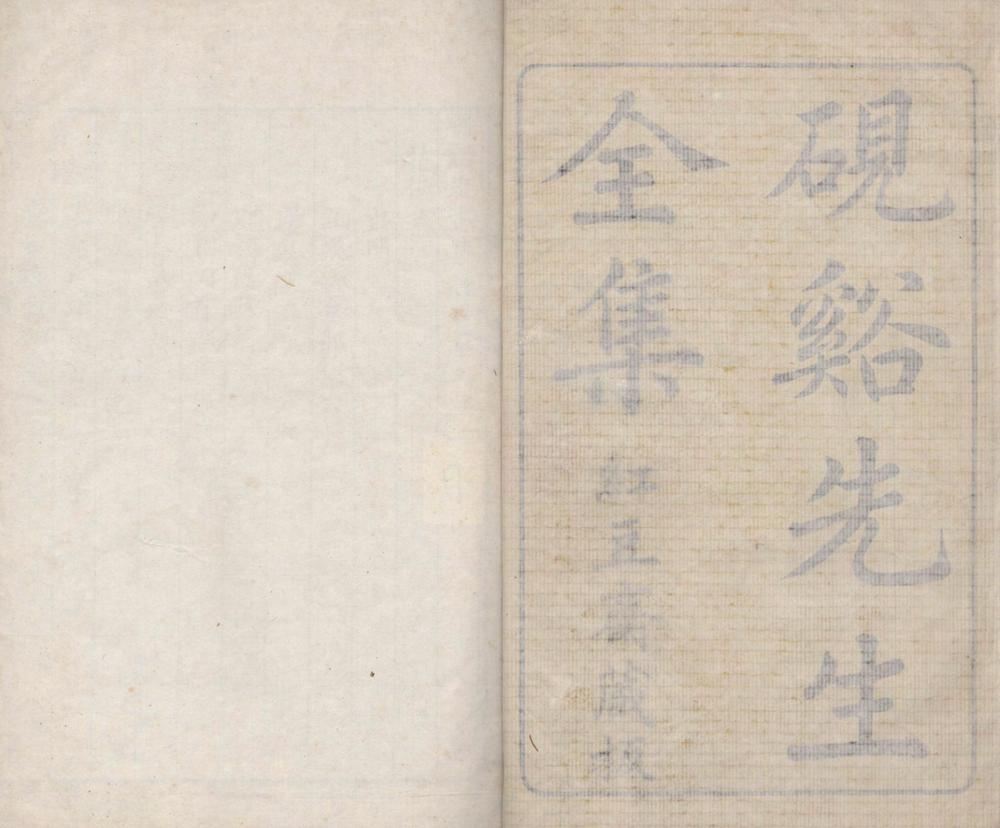 硯谿先生
全集
紅豆齋藏板